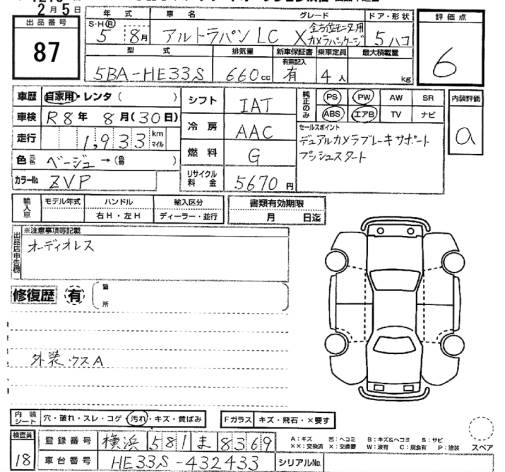 2月5日
出品番号
87
年式 車名 グレード ドア・形状
S・H・R 5年 8月 アルトラパンLC X 全方位モニタ用カメラパッケージ 5 ハコ
型式 排気量 新車保証書 乗車定員 最大積載量
有無記入
5BA-HE33S 660cc 有 4人 kg
評価点
6
車歴 自家用・レンタ( )
車検 R8年8月(30日)
走行 1,933 km マイル
色 元色 ベージュ→(色 )
カラーNo. ZVP
シフト IAT
冷房 AAC
燃料 G
リサイクル料金 5670円
純正のみ PS PW AW SR
ABS エアB TV ナビ
セールスポイント
デュアルカメラブレーキサポート
プッシュスタート
内装評価
a
輸入車 モデル年式 ハンドル 輸入区分
右H・左H ディーラー・並行
書類有効期限
月 日迄
※注意事項等記載
オーディオレス
修復歴 有 ( 箇所 )
外装・クスA
内装シート 穴・破れ・スレ・コゲ・汚れ・キズ・黄ばみ
Fガラス キズ・飛石・X要す
検査員
18
登録番号 横浜 581 ま 8369
車台番号 HE33S-432433
シリアルNo.
A:キズ B:キズ&ヘコミ S:サビ
XX:交換済 X:交換要 W:波有 C:腐食有 P:塗装
スペア